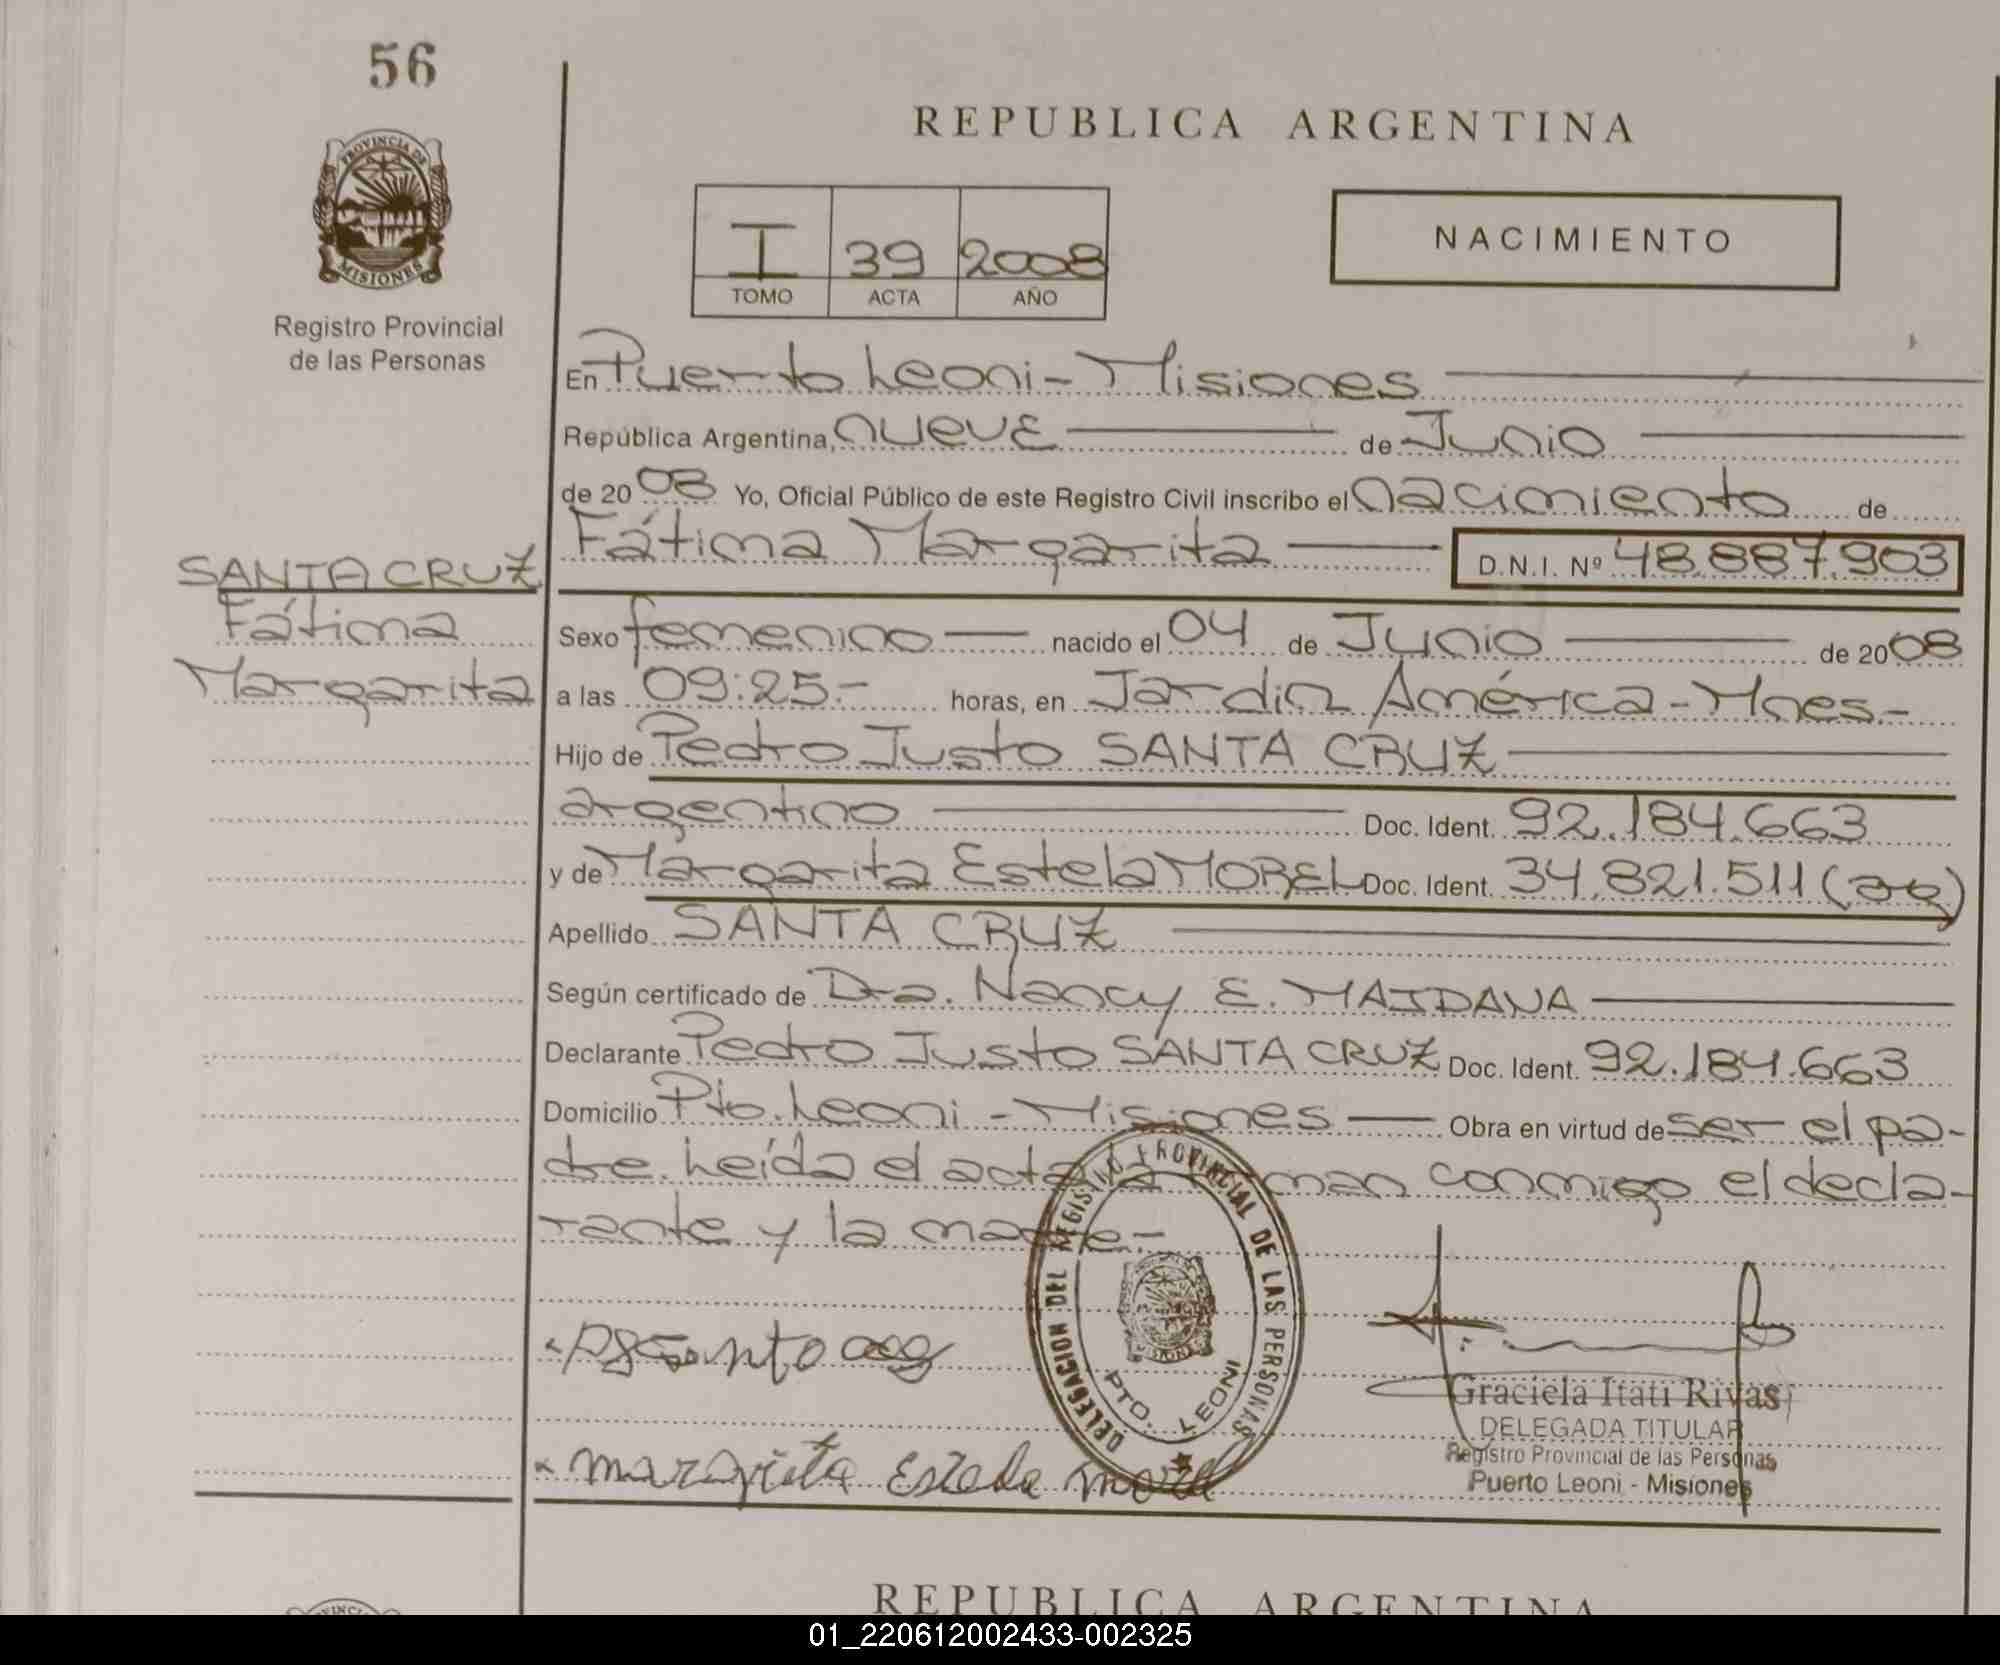 56
REPUBLICA ARGENTINA
PROVINCIA DE
MISIONES
Registro Provincial
de las Personas
I 39 2008
TOMO ACTA AÑO
NACIMIENTO
En Puerto Leoni - Misiones
República Argentina, nueve de Junio
de 2008 Yo, Oficial Público de este Registro Civil inscribo el nacimiento de
Fátima Margarita D.N.I. Nº 48.887.903
SANTA CRUZ
Fátima
Margarita
Sexo femenino nacido el 04 de Junio de 2008
a las 09:25.- horas, en Jardín América - Mnes-
Hijo de Pedro Justo SANTA CRUZ
argentino Doc. Ident. 92.184.663
y de Margarita Estela MOREL Doc. Ident. 34.821.511 (arg)
Apellido SANTA CRUZ
Según certificado de Dra. Nancy E. MAIDANA
Declarante Pedro Justo SANTA CRUZ Doc. Ident. 92.184.663
Domicilio Pto. Leoni - Misiones Obra en virtud de ser el pa-
dre. Leída el acta la firman conmigo el decla-
rante y la madre-
DELEGACION DEL REGISTRO PROVINCIAL DE LAS PERSONAS
MISIONES
PTO. LEONI
Margarita Estela Morel
Graciela Itatí Rivas
DELEGADA TITULAR
Registro Provincial de las Personas
Puerto Leoni - Misiones
REPUBLICA ARGENTINA
01_220612002433-002325